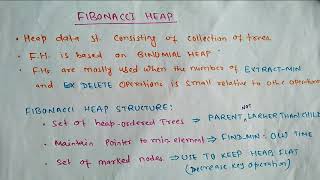 FIBONACCI HEAP
• Heap data st. Consisting of collection of trees
• F.H. is based on BINOMIAL HEAP
• F.Hs. are mostly used when the number of EXTRACT-MIN and DELETE operations is small relative to othe operations
FIBONACCI HEAP STRUCTURE:
NOT
• Set of heap-ordered Trees ⇒ PARENT, LARGER THAN CHILD
• Maintain Pointer to min. element ⇒ FIND-MIN: O(1) TIME
• Set of marked nodes ⇒ USE TO KEEP HEAPS FLAT
(Decrease key operation)